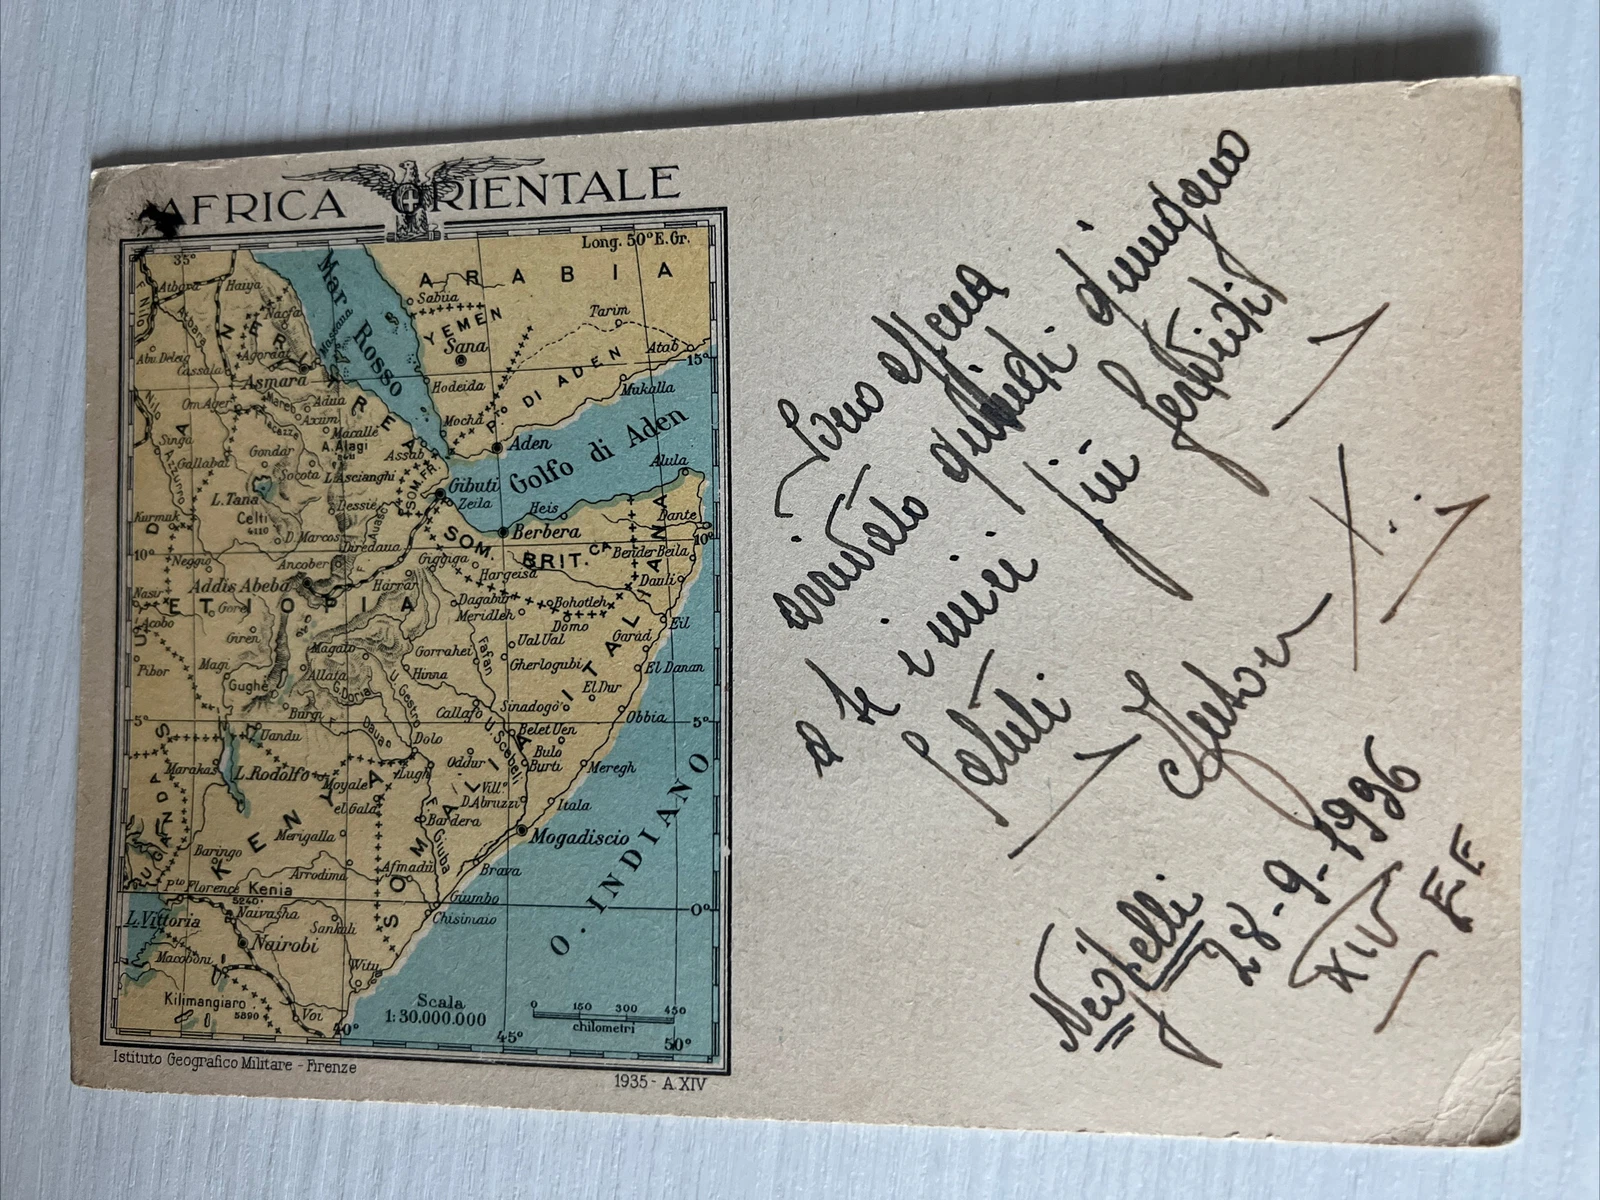 AFRICA ORIENTALE
Long. 50° E. Gr.
35°
ARABIA
Mar Rosso
Atbara
Haiya
Nacfa
Sabüa
YEMEN
Tarim
Sana
Massaua
ERITREA
Agordat
Abu Deleig
Cassala
Asmara
Atab
15°
Hodeida
P.to DI ADEN
Makalla
Om Ager
Mareb
Adua
Axum
Macallè
A. Alagi
Mocha
Aden
Golfo di Aden
Singa
Gallabat
Gondar
Socota
L. Ascianghi
Assab
SOM. FR.
Alula
L. Tana
Celti
4110
Dessie
Gibuti
Zeila
Heis
Dante
Kurmuk
D. Marcos
Auasc
Berbera
10°
10°
Neggio
Ancober
Diredaua
SOM. BRIT.CA
Bender Beila
Giggiga
Hargeisa
Addis Abeba
Harrar
Dauli
Nasir
ETIOPIA
Gore
Dagabur
Bohotleh
Acobo
Meridleh
Domo
Eil
Giren
Ual Ual
Garad
Pibor
Magi
Magalo
Gorrahei
Fafan
Gherlogubi
El Danan
Gughè
Allata
G. Doria
Hinna
U. Gestro
El Dur
Burgi
Callafo
Sinadogò
Obbia
5°
5°
L. Uandu
Daua
Dolo
U. Scebeli
Belet Uen
Bulo
Burti
Maraka
L. Rodolfo
Moyale
Lugh
Oddur
Meregh
SOMALIA ITALIANA
el Gala
Vill.°
D. Abruzzi
Itala
SUDAN
UGANDA
KENYA
Merigalla
F. Giuba
Bardera
Mogadiscio
O. INDIANO
Baringo
Arrodima
Afmadù
Brava
P.to Florence
Kenia
5240
Giumbo
0°
L. Vittoria
Naivasha
Sankuli
Chisimaio
Nairobi
Macoboni
Witu
Kilimangiaro
5890
Voi
Scala
1:30.000.000
0 150 300 450
chilometri
40°
45°
50°
Istituto Geografico Militare - Firenze
1935 - A. XIV
Sono appena
arrivato quindi giungano
a te i miei più fervidi
saluti.
Neghelli
28-9-1936
XIV EF